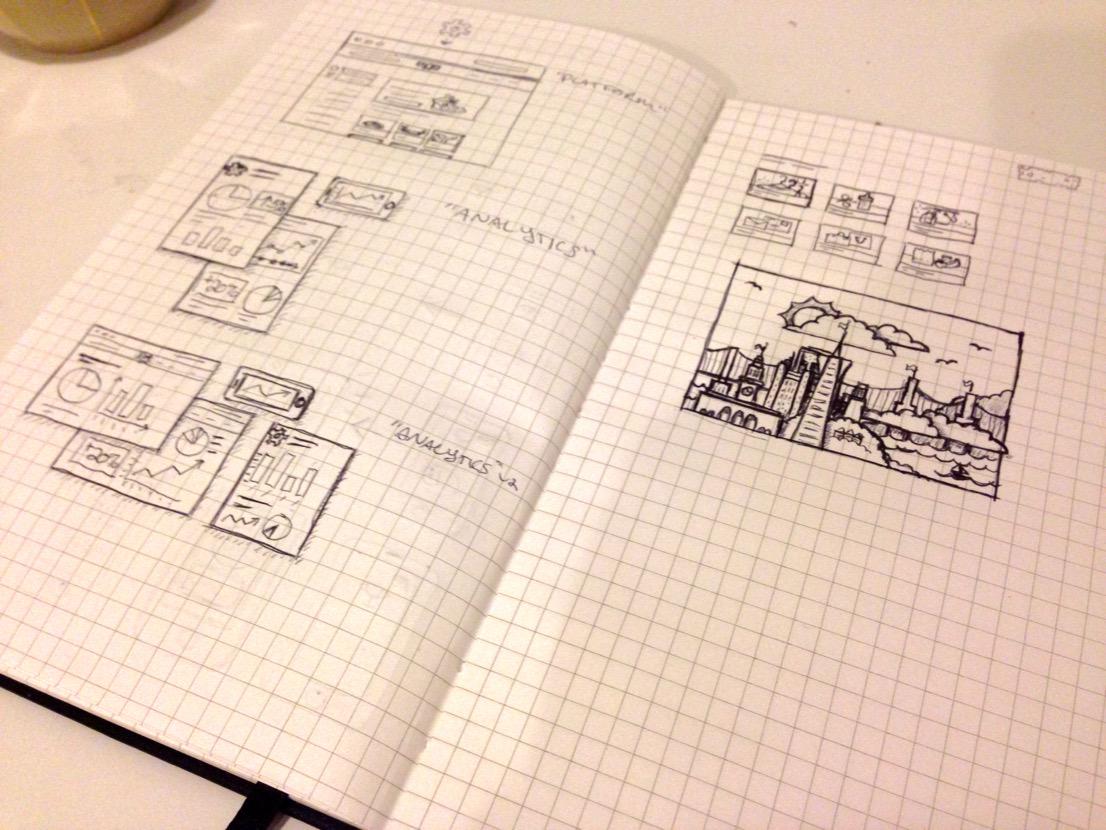 "PLATFORM"
"ANALYTICS"
+20%
"ANALYTICS" V2
20%